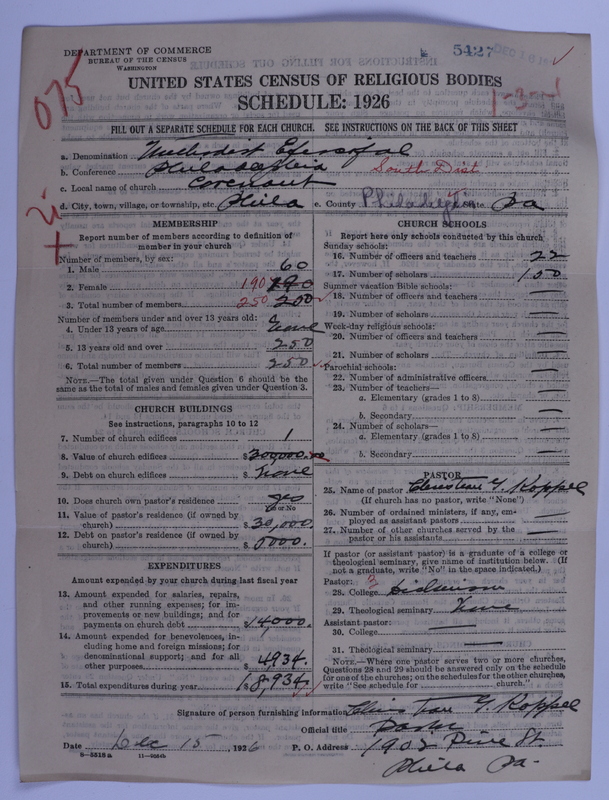 DEPARTMENT OF COMMERCE
BUREAU OF THE CENSUS
WASHINGTON
5427
075
UNITED STATES CENSUS OF RELIGIOUS BODIES
SCHEDULE: 1926
1-37
FILL OUT A SEPARATE SCHEDULE FOR EACH CHURCH. SEE INSTRUCTIONS ON THE BACK OF THIS SHEET
a. Denomination Methodist Episcopal
b. Conference Philadelphia South Dist
c. Local name of church Covenant
d. City, town, village, or township, etc. Phila e. County Philadelphia State Pa
MEMBERSHIP
Report number of members according to definition of
member in your church
Number of members, by sex:
1. Male 60
2. Female 190 190
3. Total number of members 250 200
Number of members under and over 13 years old:
4. Under 13 years of age None
5. 13 years old and over 250
6. Total number of members 250
NOTE.—The total given under Question 6 should be the
same as the total of males and females given under Question 3.
CHURCH BUILDINGS
See instructions, paragraphs 10 to 12
7. Number of church edifices 1
8. Value of church edifices $300000.
9. Debt on church edifices $None
10. Does church own pastor's residence yes
Yes or No
11. Value of pastor's residence (if owned by
church) $30,000.
12. Debt on pastor's residence (if owned by
church) $5000.
EXPENDITURES
Amount expended by your church during last fiscal year
13. Amount expended for salaries, repairs,
and other running expenses; for im-
provements or new buildings; and for
payments on church debt $14000.
14. Amount expended for benevolences, in-
cluding home and foreign missions; for
denominational support; and for all
other purposes $4934.
15. Total expenditures during year $18,934.
CHURCH SCHOOLS
Report here only schools conducted by this church
Sunday schools:
16. Number of officers and teachers 22
17. Number of scholars 150
Summer vacation Bible schools:
18. Number of officers and teachers —
19. Number of scholars —
Week-day religious schools:
20. Number of officers and teachers —
21. Number of scholars —
Parochial schools:
22. Number of administrative officers —
23. Number of teachers—
a. Elementary (grades 1 to 8) —
b. Secondary —
24. Number of scholars—
a. Elementary (grades 1 to 8) —
b. Secondary —
PASTOR
25. Name of pastor G. Koppel
(If church has no pastor, write "None")
26. Number of ordained ministers, if any, em-
ployed as assistant pastors —
27. Number of other churches served by the
pastor or his assistants —
If pastor (or assistant pastor) is a graduate of a college or
theological seminary, give name of institution below. (If
not a graduate, write "No" in the space indicated.)
Pastor: 3
28. College Dickinson
29. Theological seminary None
Assistant pastor:
30. College —
31. Theological seminary —
NOTE.—Where one pastor serves two or more churches,
Questions 28 and 29 should be answered only on the schedule
for one of the churches; on the schedules for the other churches,
write "See schedule for church."
Signature of person furnishing information G. Koppel
Official title Pastor
Date Dec 15, 1926 P. O. Address 1902 Pine St.
Phila Pa.
8-5518 a